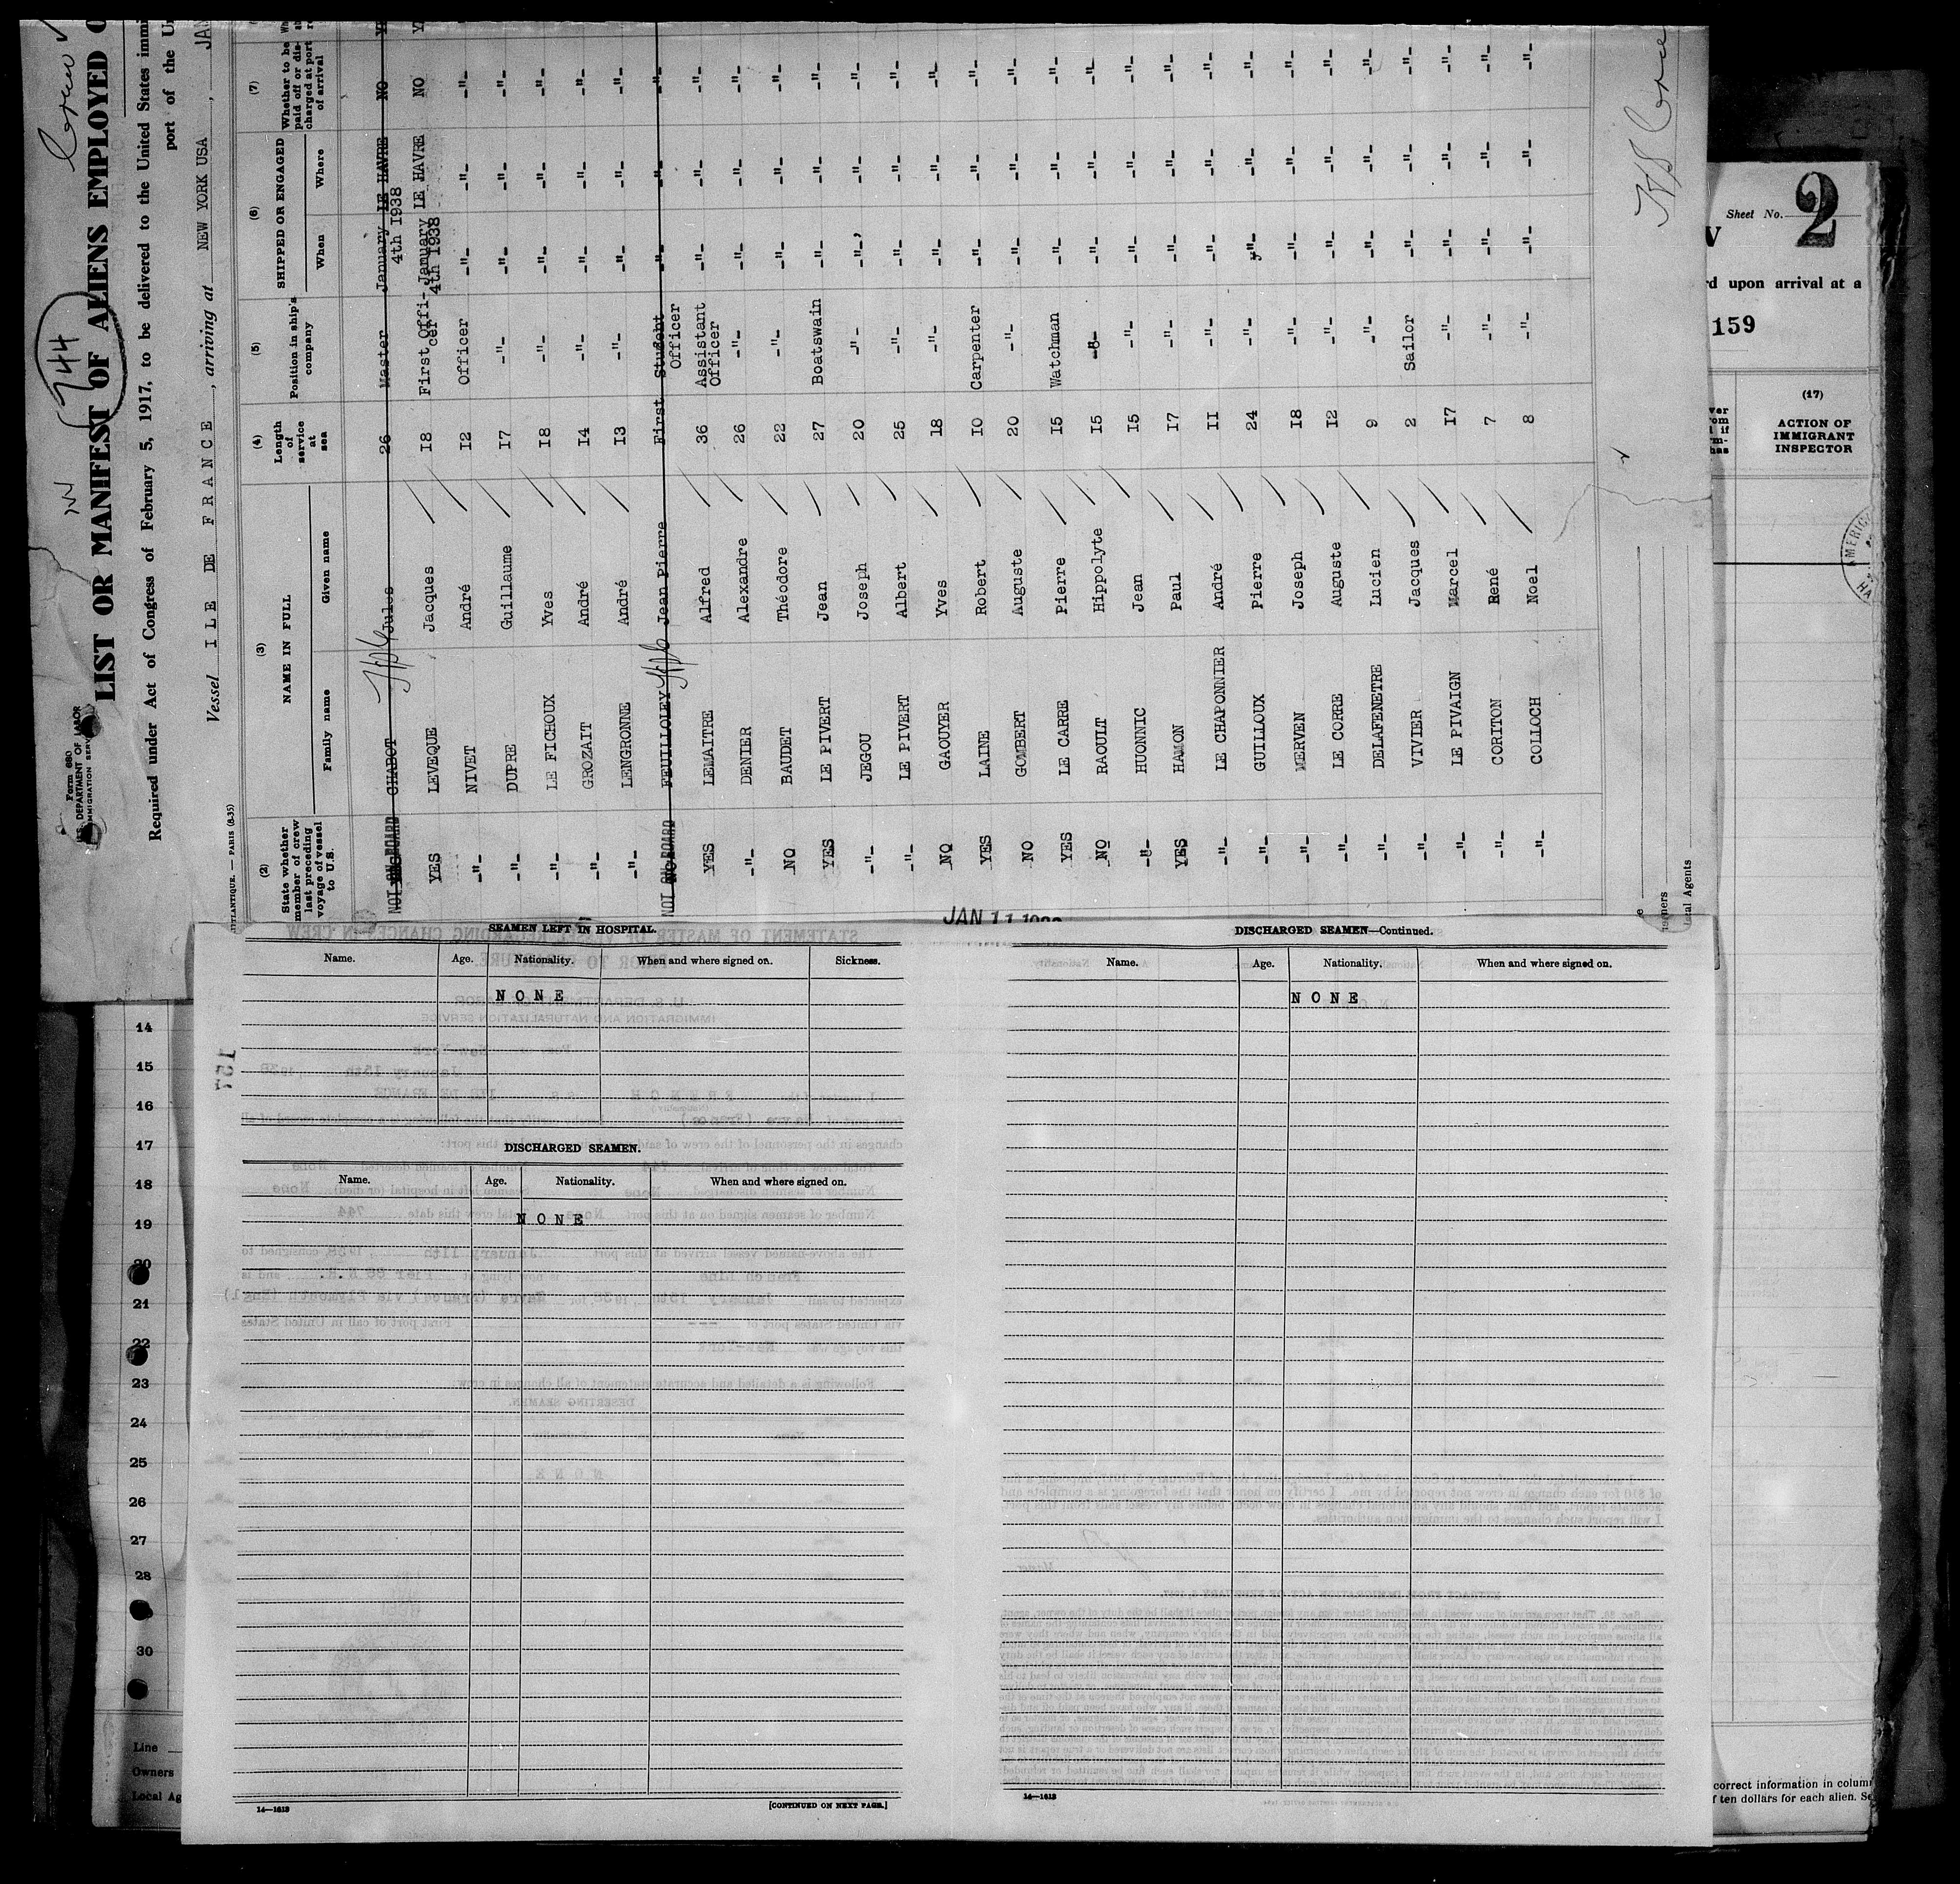 Form 680
U.S. DEPARTMENT OF LABOR
IMMIGRATION SERVICE
744
Crew
LIST OR MANIFEST OF ALIENS EMPLOYED O
Required under Act of Congress of February 5, 1917, to be delivered to the United States immi
port of the Un
Vessel ILE DE FRANCE, arriving at NEW YORK USA, JAN
ATLANTIQUE. — PARIS (8-35)
(2) State whether member of crew last preceding voyage of vessel to U.S.
(3) NAME IN FULL
Family name Given name
(4) Length of service at sea
(5) Position in ship's company
(6) SHIPPED OR ENGAGED
When Where
(7) Whether to be paid off or discharged at port of arrival
NOT ON BOARD CHABOT Jules 26 Master January 4th 1938 LE HAVRE NO
YES LEVEQUE Jacques 18 First Officer January 4th 1938 LE HAVRE NO
-"- NIVET André 12 Officer -"- -"- -"-
-"- DUPRE Guillaume 17 -"- -"- -"- -"-
-"- LE FICHOUX Yves 18 -"- -"- -"- -"-
-"- GROZAIT André 14 -"- -"- -"- -"-
-"- LENGRONNE André 13 -"- -"- -"- -"-
NOT ON BOARD FEUILLOLEY Jean Pierre First Student Officer -"- -"- -"-
YES LEMAITRE Alfred 36 Assistant Officer -"- -"- -"-
-"- DENIER Alexandre 26 -"- -"- -"- -"-
NO BAUDET Théodore 22 -"- -"- -"- -"-
YES LE PIVERT Jean 27 Boatswain -"- -"- -"-
-"- JEGOU Joseph 20 -"- -"- -"- -"-
-"- LE PIVERT Albert 25 -"- -"- -"- -"-
NO GAOUYER Yves 18 -"- -"- -"- -"-
YES LAINE Robert 10 Carpenter -"- -"- -"-
NO GOMBERT Auguste 20 -"- -"- -"- -"-
YES LE CARRE Pierre 15 Watchman -"- -"- -"-
NO RAOULT Hippolyte 15 -"- -"- -"- -"-
-"- HUONNIC Jean 15 -"- -"- -"- -"-
YES HAMON Paul 17 -"- -"- -"- -"-
-"- LE CHAPONNIER André 11 -"- -"- -"- -"-
-"- GUILLOUX Pierre 24 -"- -"- -"- -"-
-"- MERVEN Joseph 18 -"- -"- -"- -"-
-"- LE CORRE Auguste 12 -"- -"- -"- -"-
-"- DELAFENETRE Lucien 9 -"- -"- -"- -"-
-"- VIVIER Jacques 2 Sailor -"- -"- -"-
-"- LE PIVAIGN Marcel 17 -"- -"- -"- -"-
-"- CORITON René 7 -"- -"- -"- -"-
-"- COLLOCH Noel 8 -"- -"- -"- -"-
JAN 11
Sheet No. 2
rd upon arrival at a
159
(17)
ACTION OF
IMMIGRANT
INSPECTOR
SEAMEN LEFT IN HOSPITAL.
Name. Age. Nationality. When and where signed on. Sickness.
NONE
DISCHARGED SEAMEN.
Name. Age. Nationality. When and where signed on.
NONE
14—1613 [CONTINUED ON NEXT PAGE.]
DISCHARGED SEAMEN—Continued.
Name. Age. Nationality. When and where signed on.
NONE
14—1613
14
15
16
17
18
19
20
21
22
23
24
25
26
27
28
30
Line
Owners
Local Ag
correct information in colum
f ten dollars for each alien. Se